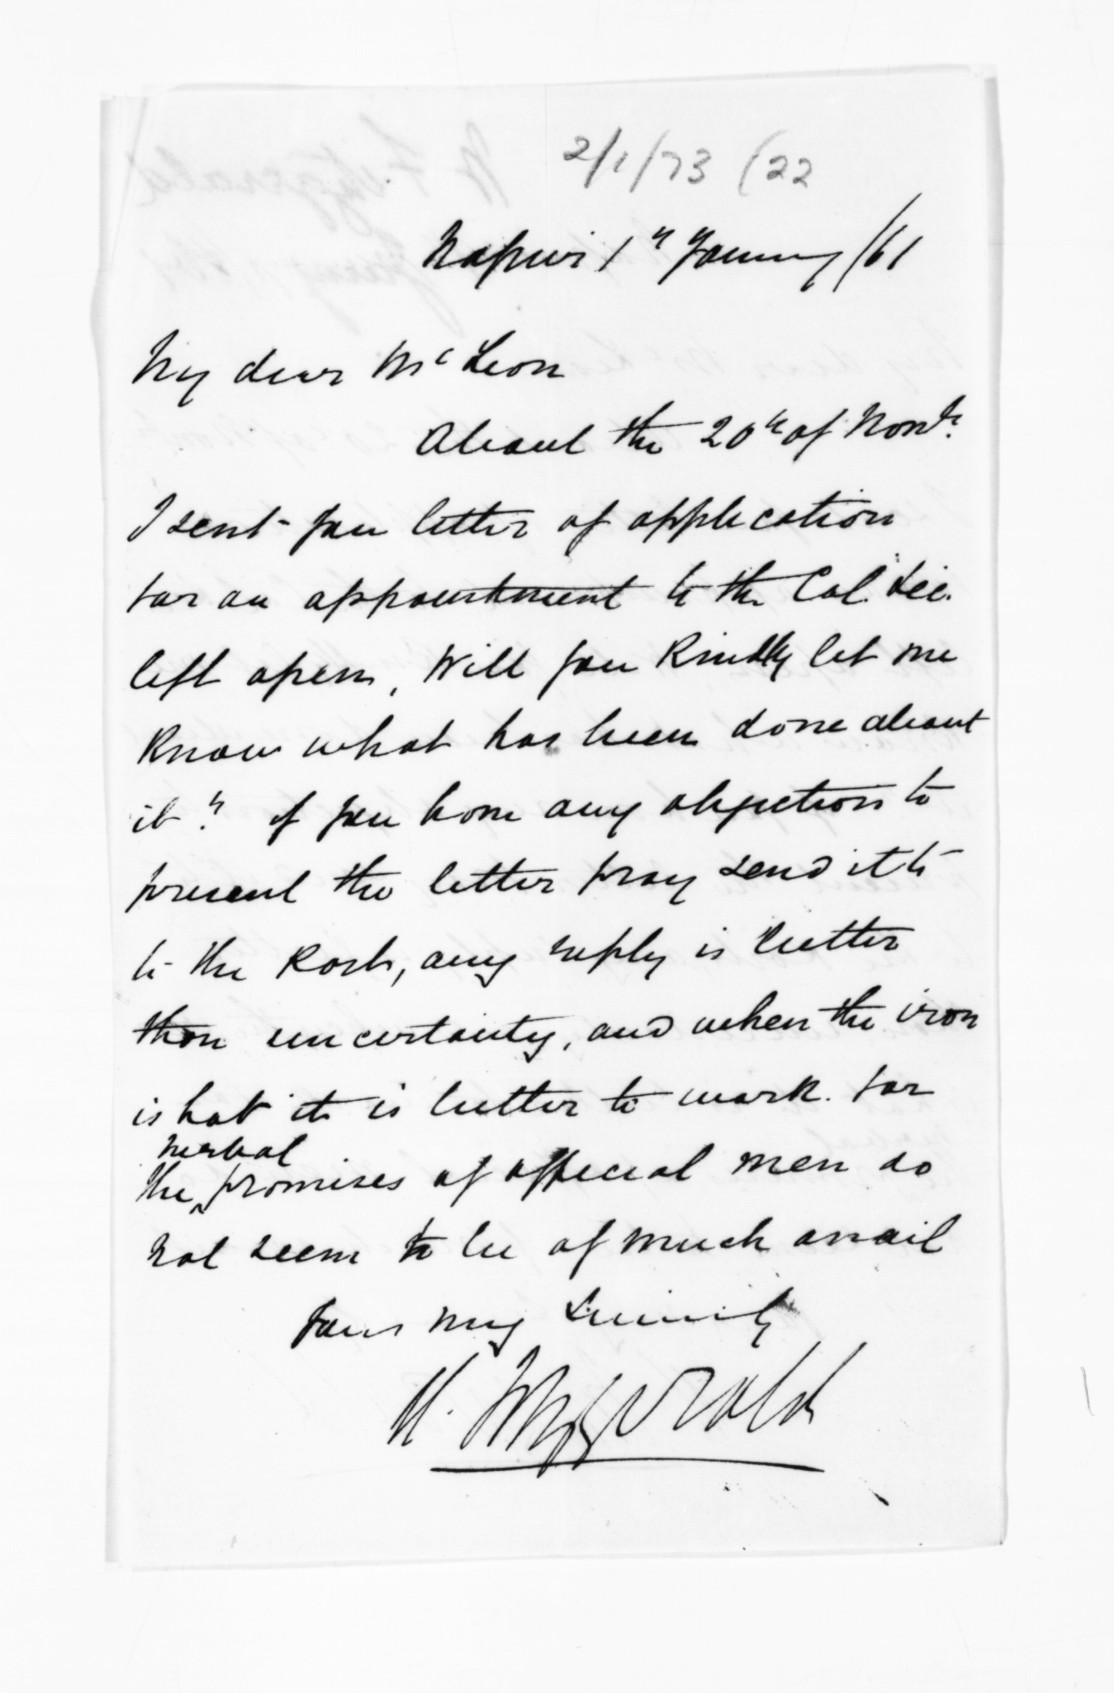 2/1/73 (22
Napier 1st January /61
My dear Mc Lean
About the 20th of Novr.
I sent you letter of application
for an appointment to the Col. Sec.
left open, Will you kindly let me
know what has been done about
it? if you have any objection to
present the letter pray send it to
to the Post, any reply is better
than uncertainty, and when the iron
is hot it is better to work. for
verbal
the promises of official men do
not seem to be of much avail
Yours very Sincerely
Fitzgerald